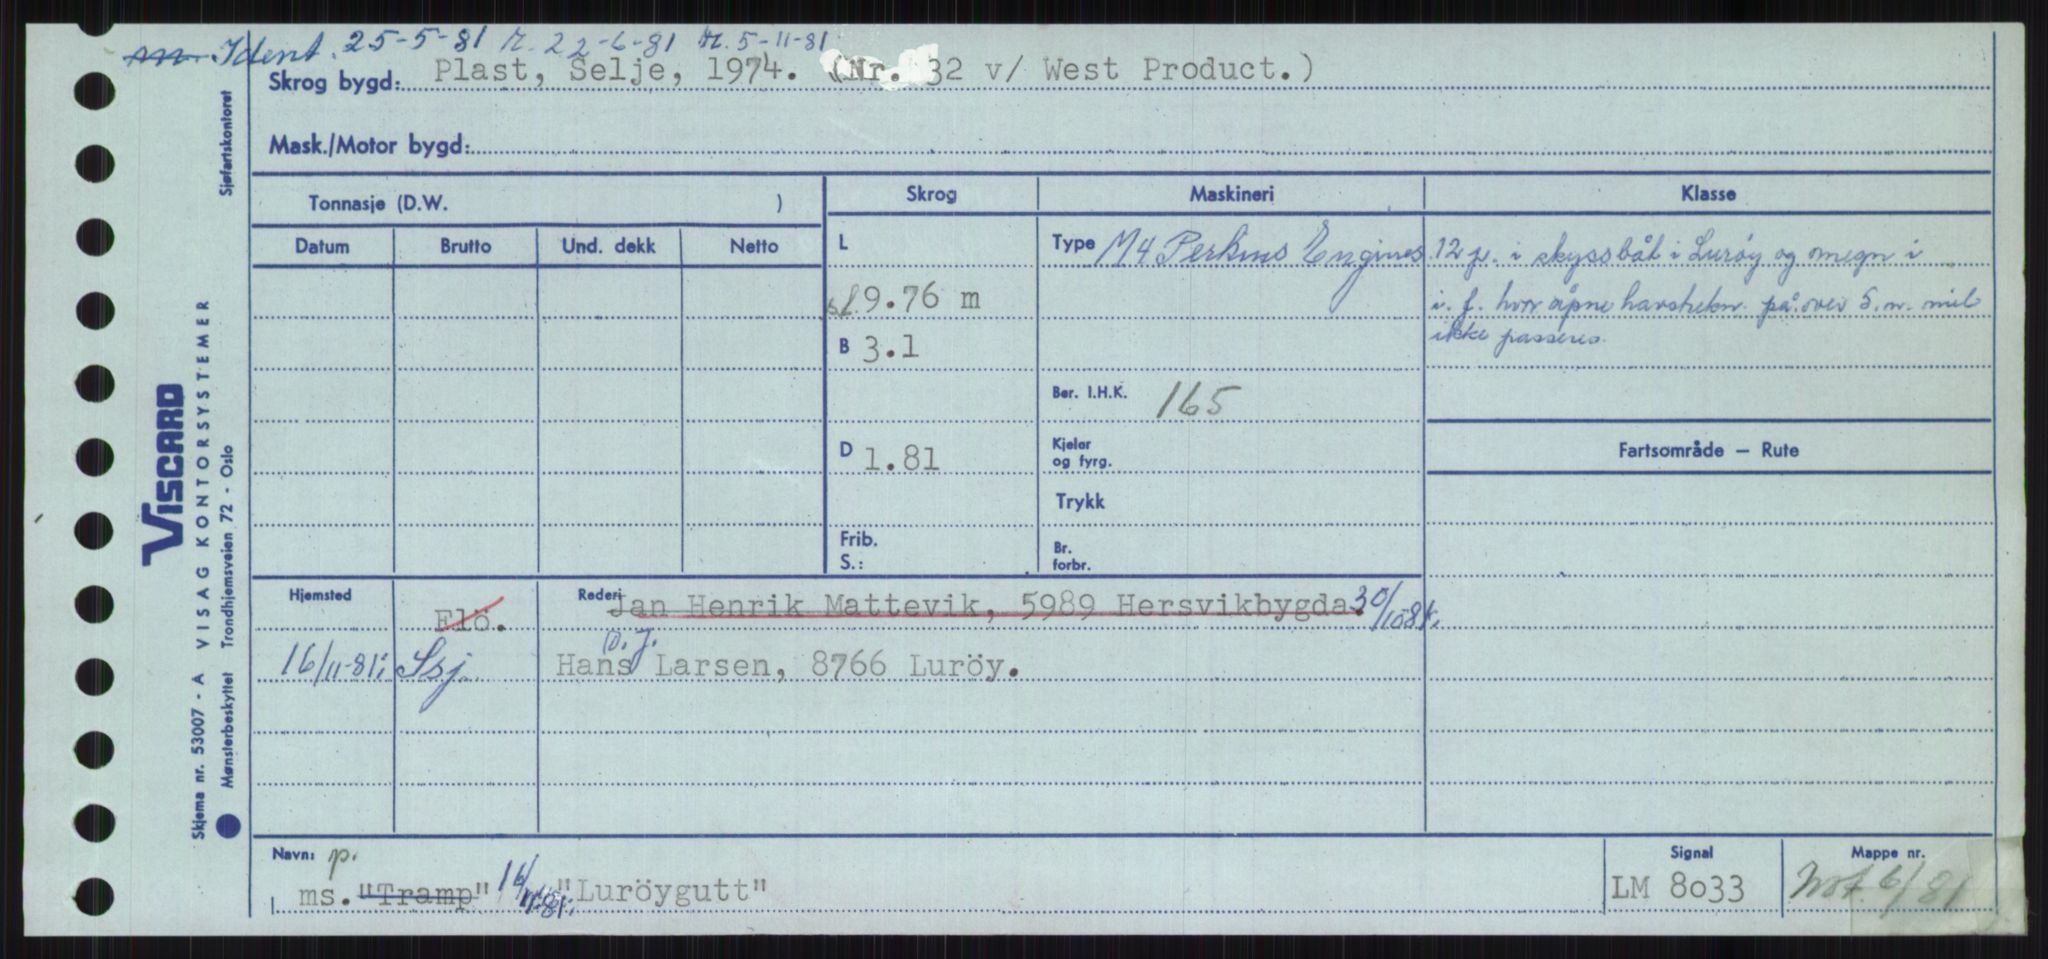 m. Ident. 25-5-81 r. 22-6-81 M. 5-11-81
Skrog bygd: Plast, Selje, 1974. (Nr. 32 v/ West Product.)
Mask./Motor bygd:
Sjøfartskontoret
Tonnasje (D.W. )
Skrog
Maskineri
Klasse
Datum
Brutto
Und. dekk
Netto
L
sl 9.76 m
B 3.1
D 1.81
Frib.
S.:
Type M4 Perkins Engines
Ber. I.H.K. 165
Kjeler
og fyrg.
Trykk
Br.
forbr.
12 p. i skyssbåt i Lurøy og omegn i
i. f. hvor åpne havstrekn. på over 5. n. mil
ikke passeres.
Fartsområde — Rute
Hjemsted
Flö.
Rederi Jan Henrik Mattevik, 5989 Hersvikbygda. 30/10-81.
O. J.
16/11-81: Ssj. Hans Larsen, 8766 Luröy.
Navn: p.
ms. "Tramp" 16/11-81: "Luröygutt"
Signal
LM 8033
Mappe nr.
Not. 6/81
VISCARD
VISAG KONTORSYSTEMER
Skjema nr. 53007 - A
Mønsterbeskyttet Trondhjemsveien 72 - Oslo